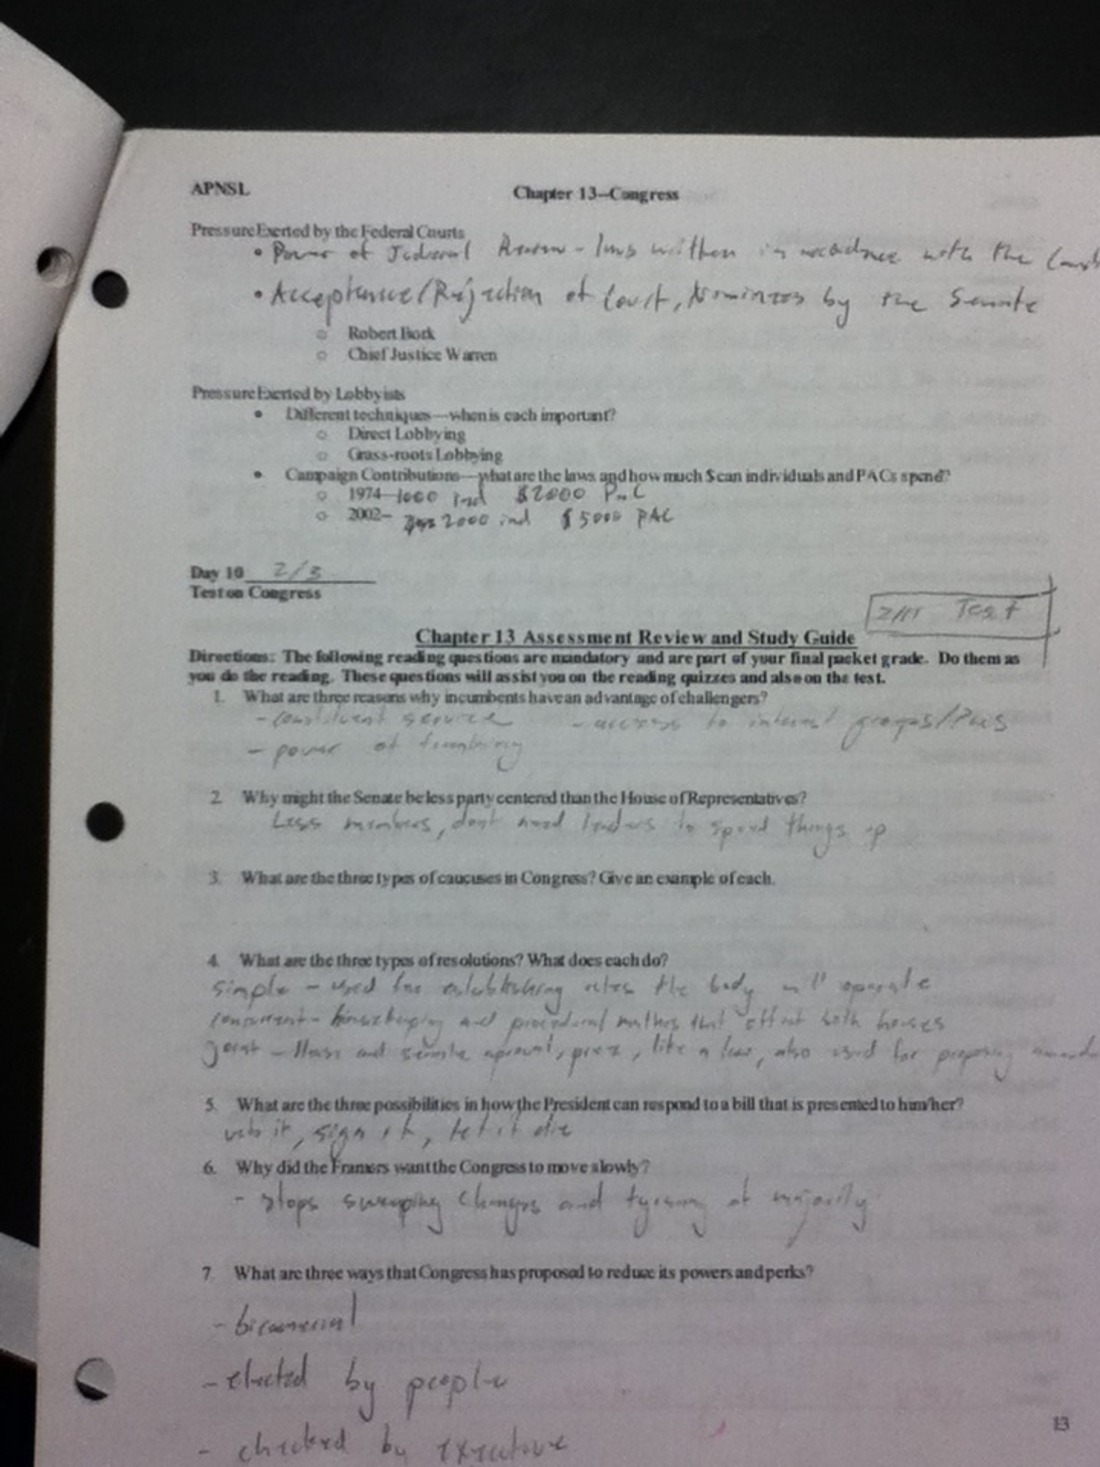 APNSL
Chapter 13--Congress
Pressure Exerted by the Federal Courts
• Power of Judicial Review - laws written in accordance with the Const
• Acceptance/Rejection of Court Nominees by the Senate
o Robert Bork
o Chief Justice Warren
Pressure Exerted by Lobbyists
• Different techniques—when is each important?
o Direct Lobbying
o Grass-roots Lobbying
• Campaign Contributions—what are the laws and how much $ can individuals and PACs spend?
o 1974--1000 ind $2000 PAC
o 2002-- 2000 ind $5000 PAC
Day 10 2/3
Test on Congress
Test
Chapter 13 Assessment Review and Study Guide
Directions: The following reading questions are mandatory and are part of your final packet grade. Do them as
you do the reading. These questions will assist you on the reading quizzes and also on the test.
1. What are three reasons why incumbents have an advantage of challengers?
- constituent service - access to interest groups/Pacs
- power of
2. Why might the Senate be less party centered than the House of Representatives?
Less members, dont need leaders to speed things up
3. What are the three types of caucuses in Congress? Give an example of each.
4. What are the three types of resolutions? What does each do?
simple - used for establishing rules the body will operate
concurrent - housekeeping and procedural matters that effect both houses
joint - House and senate approval, prez, like a law, also used for proposing
5. What are the three possibilities in how the President can respond to a bill that is presented to him/her?
veto it, sign it, let it die
6. Why did the Framers want the Congress to move slowly?
- stops sweeping changes and tyranny of majority
7. What are three ways that Congress has proposed to reduce its powers and perks?
- bicameral
- elected by people
- checked by executive
13